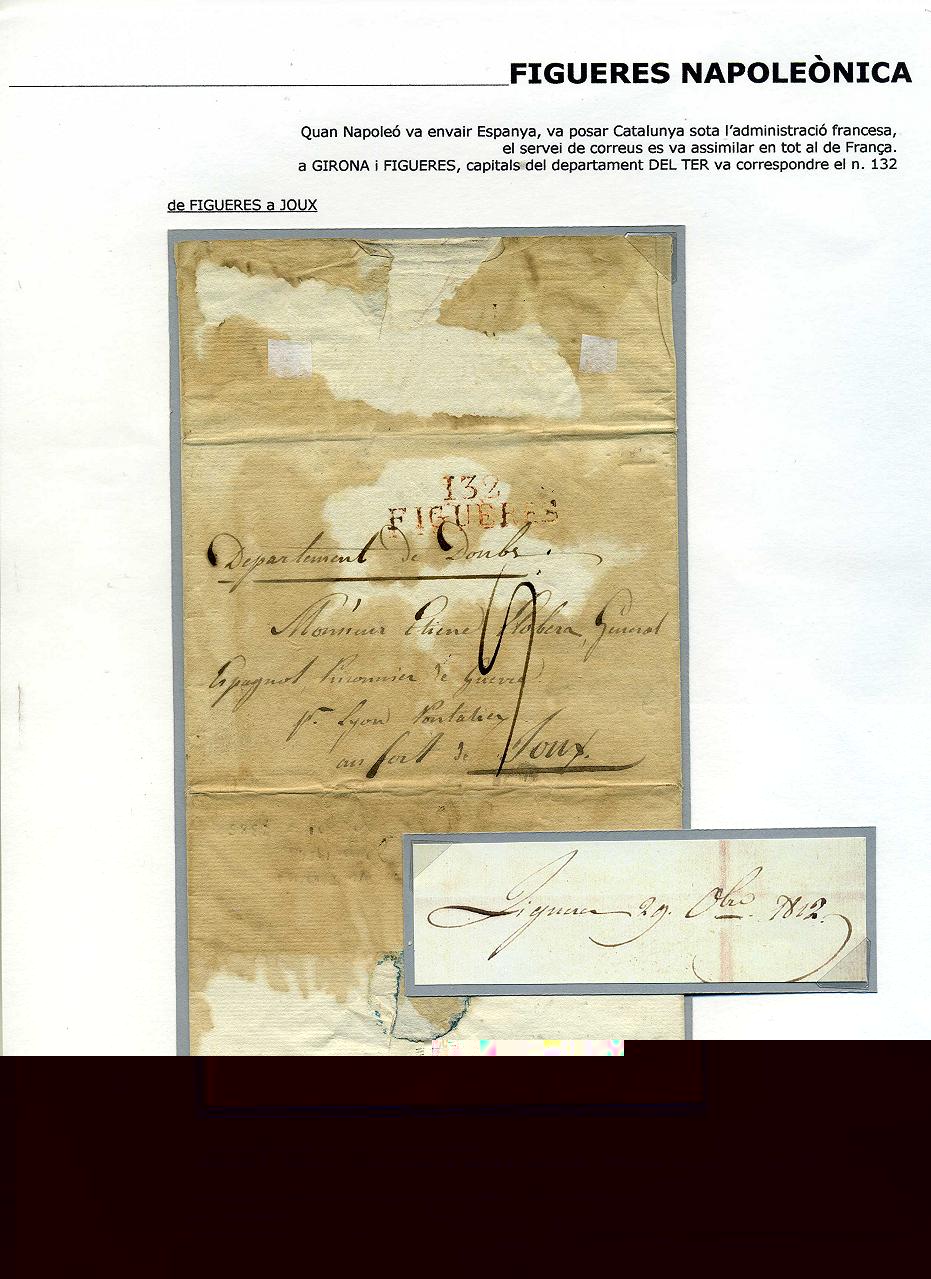 FIGUERES NAPOLEÒNICA
Quan Napoleó va envair Espanya, va posar Catalunya sota l'administració francesa,
el servei de correus es va assimilar en tot al de França.
a GIRONA i FIGUERES, capitals del departament DEL TER va correspondre el n. 132
de FIGUERES a JOUX
132
FIGUERES
Departement de Doubs.
Etiene General
Espagnol Prisonnier de Guerre
pr Lyon Pontalier
au fort de Joux.
29. 8bre 1812.